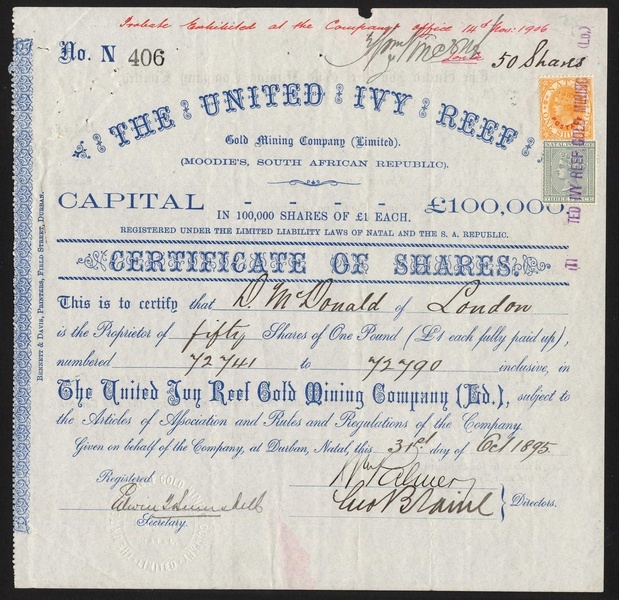 Probate Exhibited at the Company's Office 14th Nov: 1906
No. N 406
50 Shares
THE UNITED IVY REEF
Gold Mining Company (Limited).
(MOODIE'S, SOUTH AFRICAN REPUBLIC).
CAPITAL - - - - £100,000,
IN 100,000 SHARES OF £1 EACH.
REGISTERED UNDER THE LIMITED LIABILITY LAWS OF NATAL AND THE S. A. REPUBLIC.
CERTIFICATE OF SHARES.
This is to certify that D McDonald of London
is the Proprietor of fifty Shares of One Pound (£1 each fully paid up),
numbered 72741 to 72790 inclusive, in
The United Ivy Reef Gold Mining Company (Ld.), subject to
the Articles of Association and Rules and Regulations of the Company.
Given on behalf of the Company, at Durban, Natal, this 31st day of Oct 1895.
Registered
Wm Palmer
Directors.
Secretary.
BENNETT & DAVIS, PRINTERS, FIELD STREET, DURBAN.
POSTAGE
TED IVY REEF GOLD MINING
(Ld.)